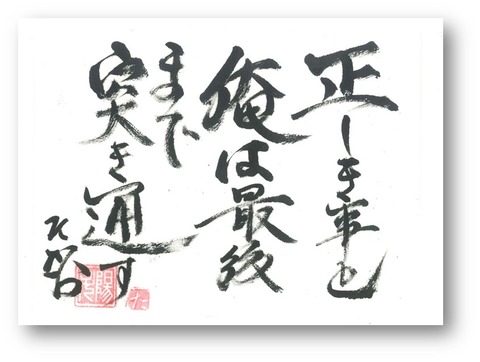 正しき事を
俺は最後
まで
突き通す